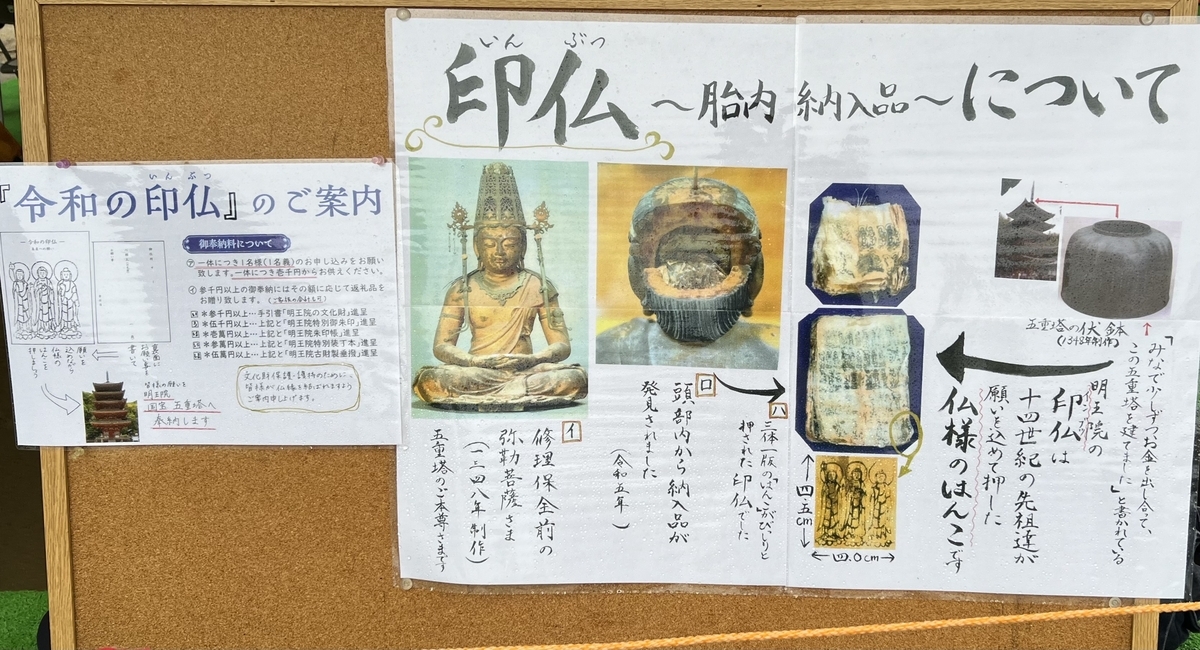 いんぶつ
印仏 ~胎内納入品~について
五重塔の伏鉢
(1348年制作)
「みなで少しずつお金を出し合って、
この五重塔を建てました」と書かれている
明王院の
印仏は
十四世紀の先祖達が
願いを込めて押した
仏様のはんこです
四.五cm
四.0cm
ハ
三体一版の「はんこ」がびっしりと
押された印仏でした
ロ
頭部内から納入品が
発見されました
(令和五年)
イ
修理保全前の
弥勒菩薩さま
(一三四八年制作)
五重塔のご本尊さまです
いんぶつ
『令和の印仏』のご案内
御奉納料について
㋐一体につき1名様(1名義)のお申し込みをお願い
致します。一体につき壱千円からお供えください。
㋑参千円以上の御奉納にはその額に応じて返礼品を
お贈り致します。
*参千円以上…手引書「明王院の文化財」進呈
*伍千円以上…上記と「明王院特別御朱印」進呈
*壱萬円以上…上記と「明王院朱印帳」進呈
*参萬円以上…上記と「明王院特別装丁本」進呈
*伍萬円以上…上記と「明王院古財製垂撥」進呈
文化財保護・護持のために、
皆様が仏様と結ばれますよう
ご案内申し上げます。
~令和の印仏~
裏面に
お願い事を
書いて
願いを
込めながら
仏様の
はんこを
押しましょう
皆様の願いを
明王院
国宝 五重塔へ
奉納します